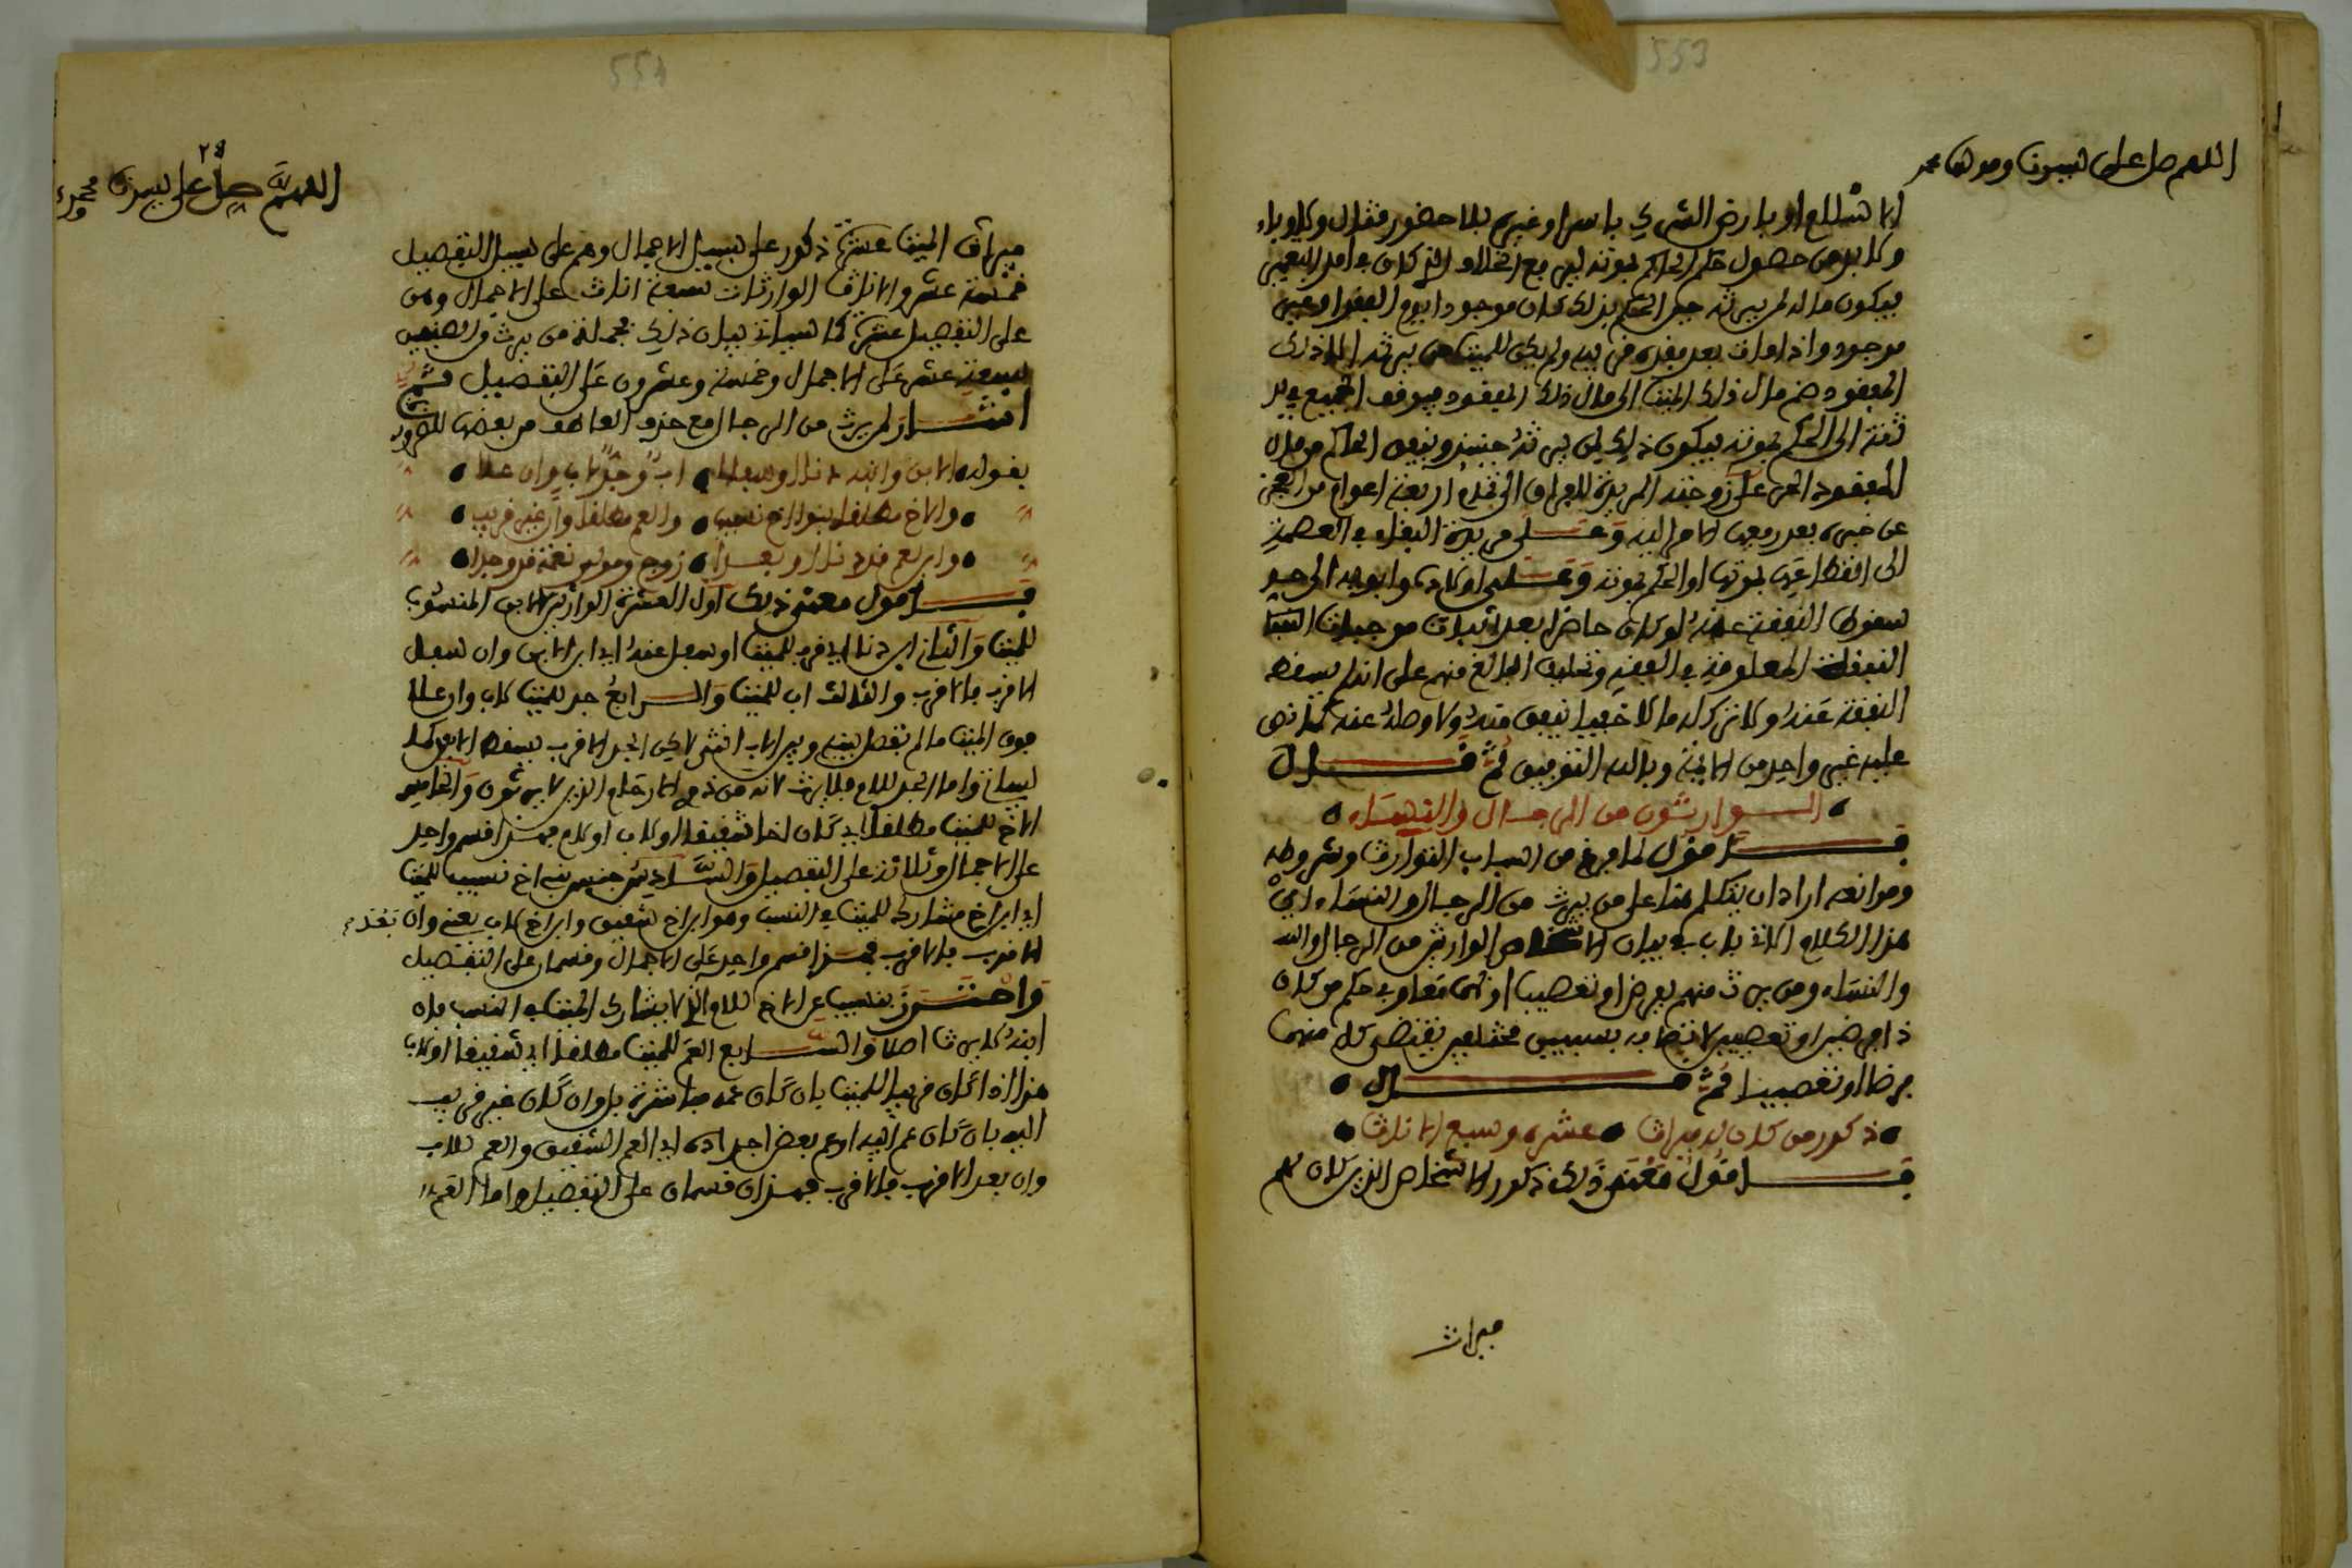 553
اللهم صل على سيدنا ومولانا محمد
الاسلام او بارض الشرك باسر او غيره بلا حضور قتال ولا وباء
ولا بد من حصول حكم الحاكم بموته ليرتفع الخلاف الذي كان في امد التعمير
فيكون ماله لمن يرثه حين الحكم بذلك كان موجودا يوم الفقد او غير
موجود واذا مات بعد فقده قريبه ولم يكن للميت من يرثه الا ذلك
المفقود ضم مال ذلك الميت الى مال ذلك المفقود فيوقف الجميع في يد
ثقة الى الحكم بموته فيكون ذلك لمن يرثه حينئذ وينفق الحاكم من مال
المفقود على زوجته المريدة للفراق الى تمام اربعة اعوام من العجز
عن خبره بعد رفعها الامر اليه وعلى مريدة البقاء في العصمة
الى انقطاعها بموتها او الحكم بموته وعلى اولاده وابويه الى حد
سقوط النفقة عنه لو كان حاضرا بعد اثبات موجبات
النفقات المعلومة في الفقه وتحليف البالغ منهم على انه لم يسقط
النفقة عنه ولا ترك له مالا خفيا ينفق منه ولا وصله عنه كما نص
عليه غير واحد من الائمة وبالله التوفيق ثم قال
الوارثون من الرجال والنساء
فاقول لما فرغ من اسباب التوارث وشروطه
وموانعه اراد ان يتكلم هنا على من يرث من الرجال والنساء اي
هذا الكلام الاتي باب في بيان الاشخاص الوارثين من الرجال
والنساء ومن يرث منهم بفرض او تعصيب او بهما معا وفي حكم من كان
ذا فرضين او تعصيبين لاتصافه بسببين مختلفين يقتضي كل منهما
فرضا او تعصيبا ثم قال
ذكور من كان له ميراث عشرة وسبع الاناث
فاقول معنى ذلك ذكور الاشخاص الذين كان لهم
ميراث
554
٢٤
اللهم صل على سيدنا محمد
ميراث الميت عشرة ذكور على سبيل الاجمال وهم على سبيل التفصيل
خمسة عشر والاناث الوارثات سبعة اناث على الاجمال وهن
على التفصيل عشرة كما سياتي بيان ذلك فجملة من يرث من الصنفين
سبعة عشر على الاجمال وخمسة وعشرون على التفصيل ثم
اشار لمن يرث من الرجال مع حذف العاطف من بعضها للضرورة
بقوله الابن وابنه دنا او سفلا اب وجد لاب وان علا
والاخ مطلقا بنو اخ نسيب والعم مطلقا وان غير قريب
وابن عم قد دنا او بعدا زوج ومولى نعمة قد وجدا
فاقول معنى ذلك اول العشرة الوارثين الابن المنسوب
للميت والثاني ابن دنا اي قرب للميت او سفل عنه اي ابن الابن وان سفل
الاقرب فالاقرب والثالث اب للميت والرابع جد للميت لاب وان علا
فوق الميت ما لم تفصل بينه وبين الاب انثى لاكن الجد الاقرب يسقط الابعد كما
سياتي واما الجد للام فلا يرث لانه من ذوي الارحام الذين لا يرثون والخامس
الاخ للميت مطلقا اي كان اخا شقيقا او لاب او لام فهذا قسم واحد
على الاجمال وثلاثة على التفصيل والسادس جنس بني اخ نسيب للميت
اي ابن اخ مشارك للميت في النسب وهو ابن اخ شقيق وابن اخ لاب يعني وان بعد
الاقرب فالاقرب فهذا قسم واحد على الاجمال وقسمان على التفصيل
واحترز بنسيب عن الاخ للام الذي لا يشارك الميت في النسب فان
ابنه لا يرث اصلا والسابع العم للميت مطلقا اي شقيقا او لاب
هذا اذا كان قريبا للميت بان كان عمه مباشرة بل وان كان غير قريب
اليه بان كان عم ابيه او عم بعض اجداده اي العم الشقيق والعم للاب
وان بعد الاقرب فالاقرب فهذان قسمان على التفصيل واما العم